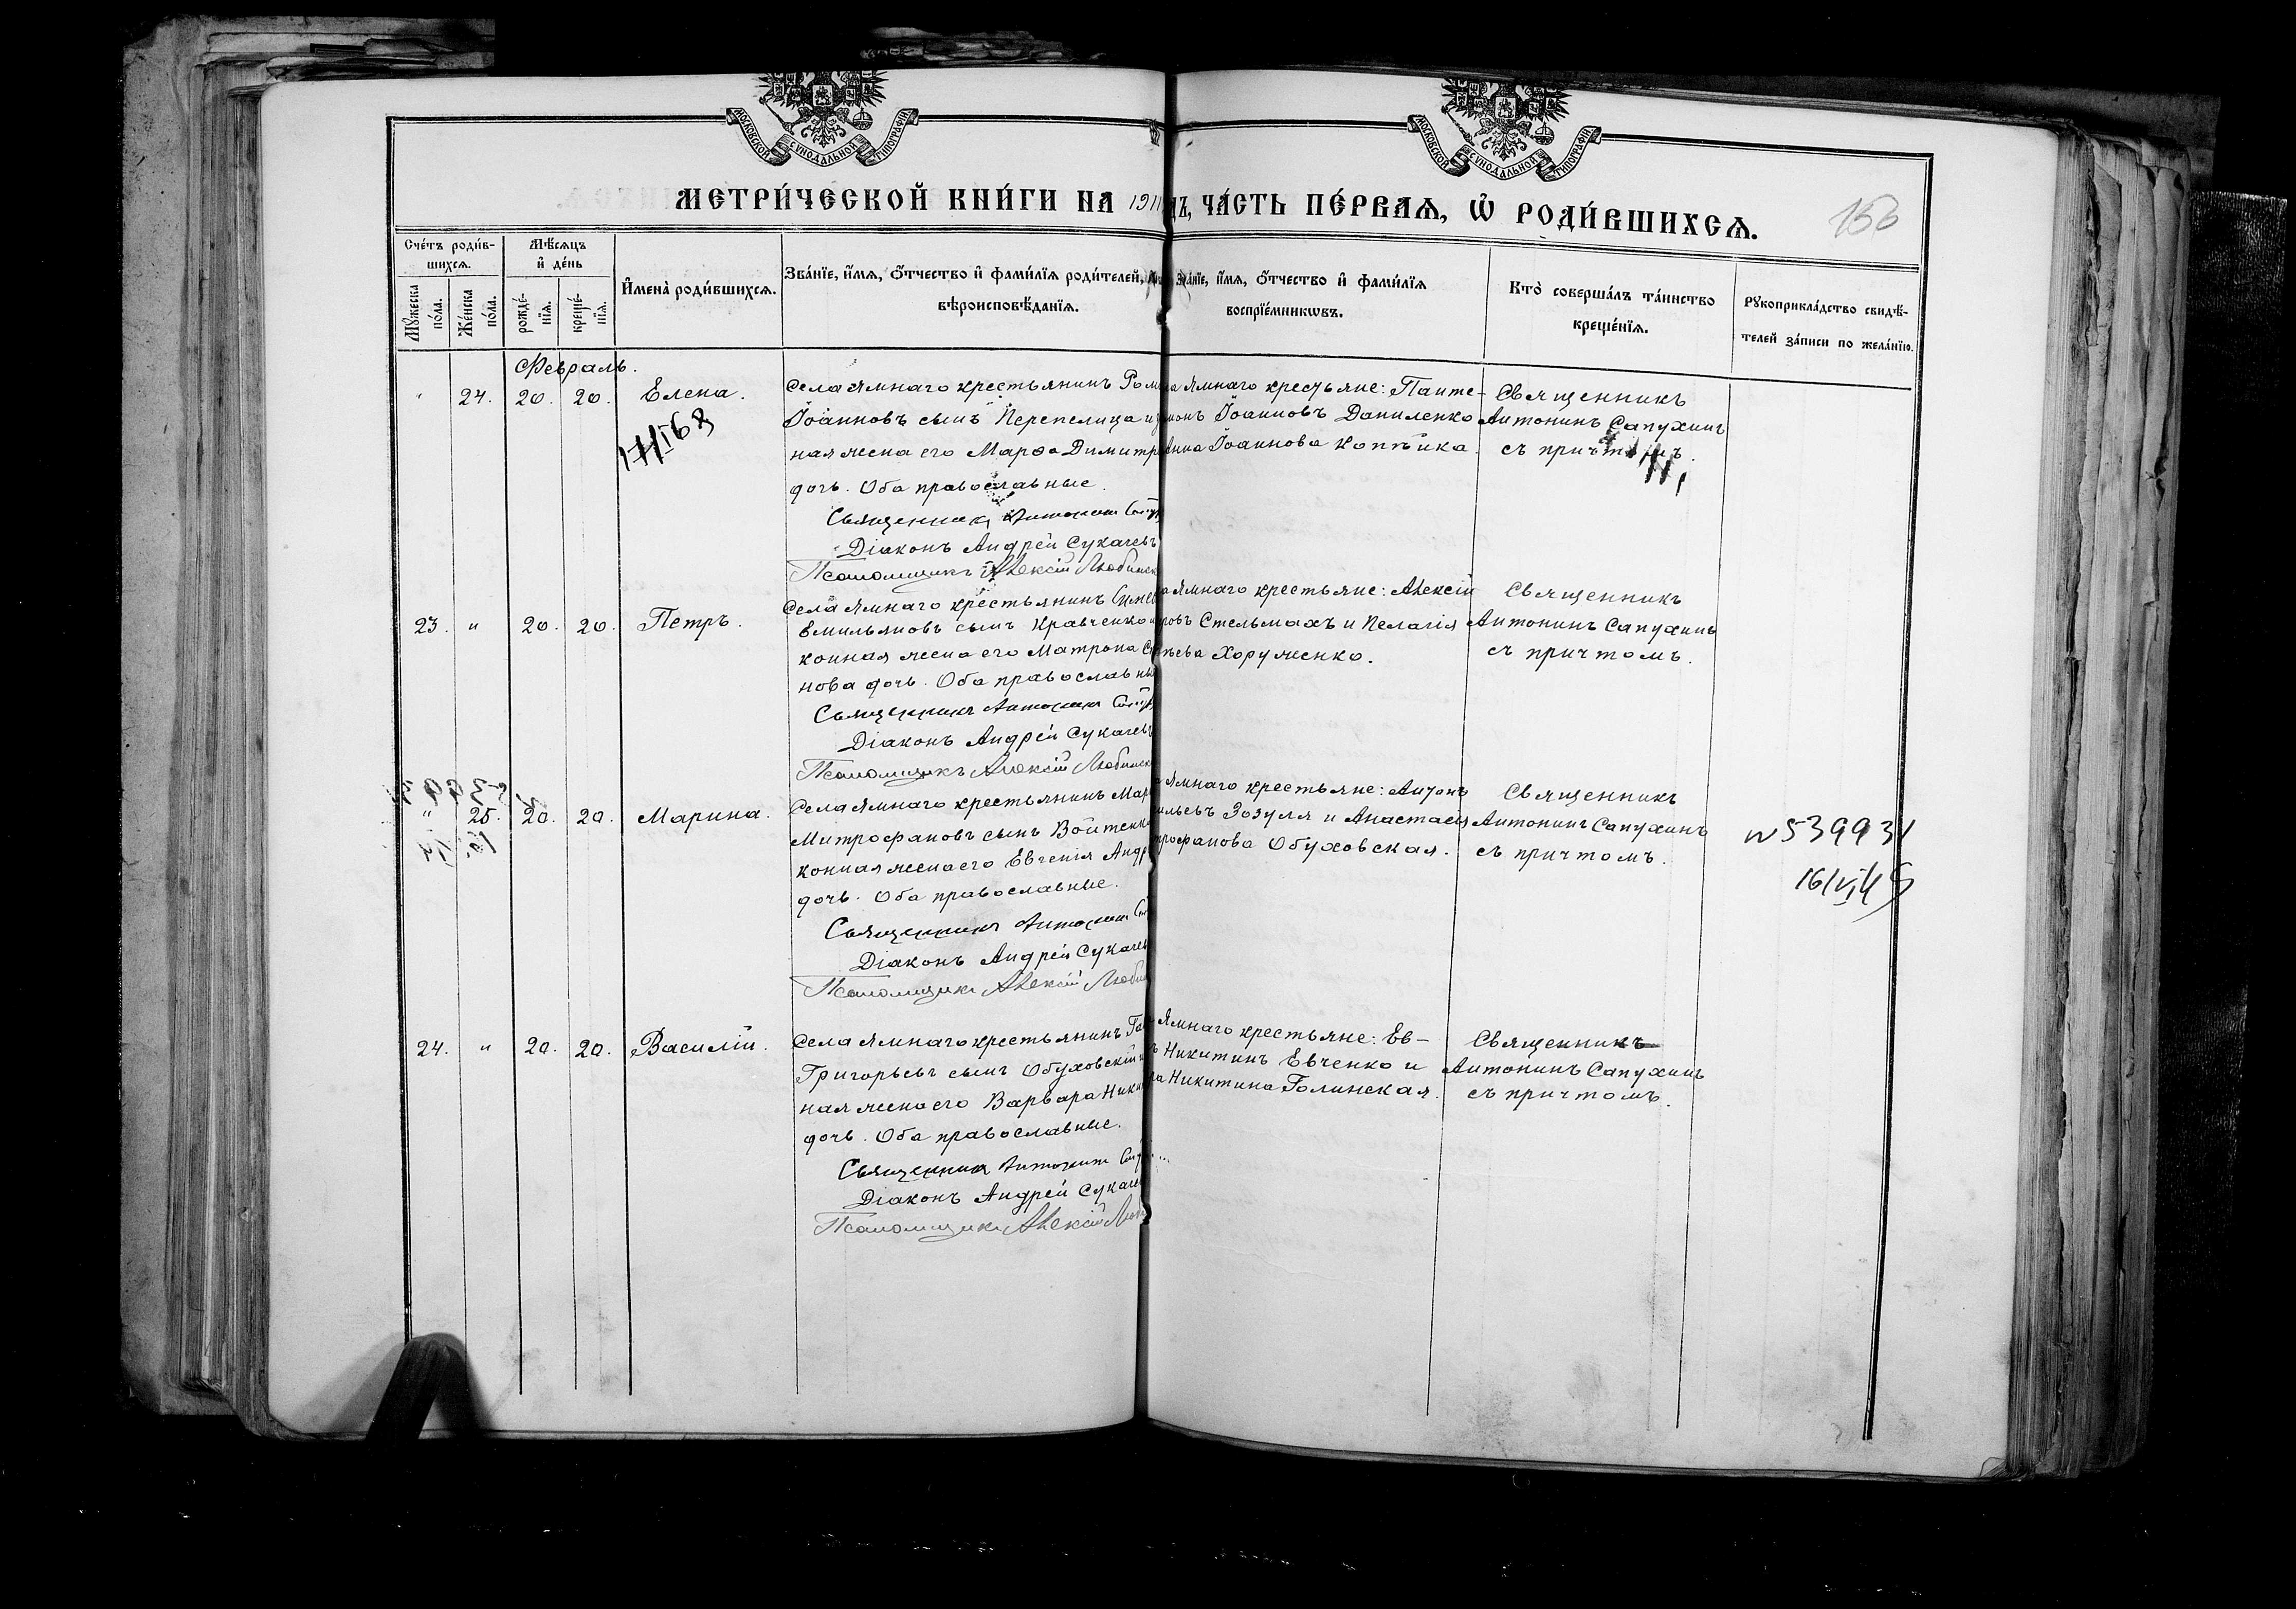 МОСКОВСКОЙ СУНОДАЛЬНОЙ ТИПОГРАФІИ
МОСКОВСКОЙ СУНОДАЛЬНОЙ ТИПОГРАФІИ
МЕТРИ́ЧЕСКОЙ КНИ́ГИ НА 1911 ДЪ, ЧА́СТЬ ПЕ́РВАѦ, Ѡ҆ РОДИ́ВШИХСѦ.
156
Сче́тъ роди́в-
шихсѧ.
Мѣ́сѧцъ
и҆ де́нь
Мꙋ́жеска
по́ла.
Же́нска
по́ла.
рожде́-
нїѧ.
креще́-
нїѧ.
И҆мена̀ роди́вшихсѧ.
Зва́нїе, и҆́мѧ, ѻ҆́тчество и҆ фами́лїѧ роди́телей,
вѣроисповѣ́данїѧ.
Зва́нїе, и҆́мѧ, ѻ҆́тчество и҆ фами́лїѧ
воспрїе́мникѡвъ.
Кто̀ соверша́лъ та́инство
креще́нїѧ.
Рꙋкоприкла́дство свидѣ́-
телей за́писи по жела́нїю.
Февраль.
" 24. 20. 20. Елена.
17/I 68
Села Ямнаго крестьянинъ Ром
Іоанновъ сынъ Перепелица и з
ная жена его Марѳа Димитр
дочь. Оба православные.
Священникъ Антонин
Діаконъ Андрей Сукачевъ
Псаломщикъ Алексій Любимск
Ямнаго крестьяне: Панте-
монъ Іоанновъ Даниленко
Іоаннова Коптѣка.
Священникъ
Антонинъ Сапухинъ
съ причтомъ.
23. " 20. 20. Петръ.
Села Ямнаго крестьянинъ Симе
Емильяновъ сынъ Кравченко и
конная жена его Матрона С
нова дочь. Оба православны
Священникъ Антонин
Діаконъ Андрей Сукачевъ
Псаломщикъ Алексій Любимск
а Ямнаго крестьяне: Алексій
ровъ Стельмахъ и Пелагія
ьева Хоруженко.
Священникъ
Антонинъ Сапухинъ
съ причтомъ.
" 25. 20. 20. Марина.
Села Ямнаго крестьянинъ Мар
Митрофановъ сынъ Войтенк
конная жена его Евгенія Андр
дочь. Оба православные.
Священникъ Антонин
Діаконъ Андрей Сукачев
Псаломщикъ Алексій Любим
Ямнаго крестьяне: Антонъ
ильевъ Зозуля и Анастасія
трофанова Обуховская.
Священникъ
Антонинъ Сапухинъ
съ причтомъ.
N 539931
24. " 20. 20. Василій.
Села Ямнаго крестьянинъ
Григорьевъ сынъ Обуховскій
ная жена его Варвара Ники
дочь. Оба православные.
Священник Антонин
Діаконъ Андрей Сукаче
Псаломщикъ Алексій Люб
Ямнаго крестьяне: Ев-
Никитинъ Евченко и
ра Никитина Голинская.
Священникъ
Антонинъ Сапухинъ
съ причтомъ.